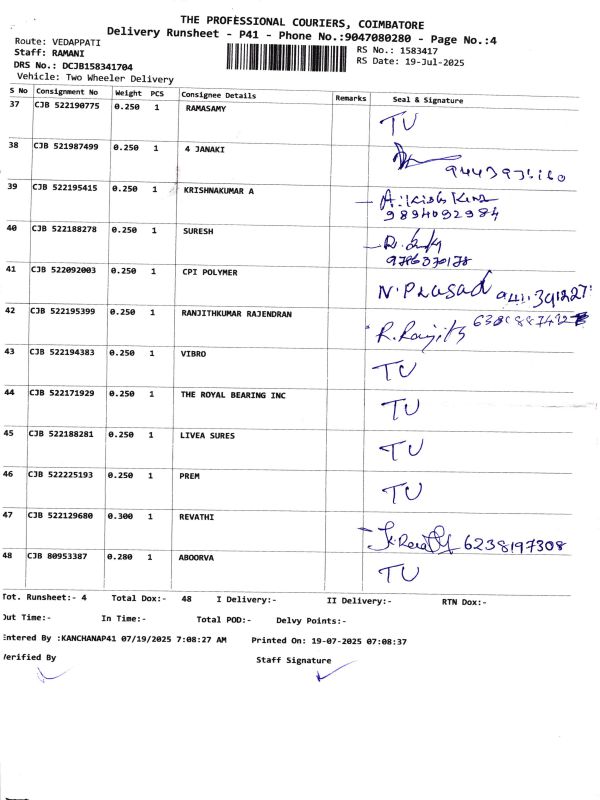 THE PROFESSIONAL COURIERS, COIMBATORE
Delivery Runsheet - P41 - Phone No.:9047080280 - Page No.:4
Route: VEDAPPATI
RS No.: 1583417
Staff: RAMANI
RS Date: 19-Jul-2025
DRS No.: DCJB158341704
Vehicle: Two Wheeler Delivery
S No Consignment No Weight PCS Consignee Details Remarks Seal & Signature
37 CJB 522190775 0.250 1 RAMASAMY TU
38 CJB 521987499 0.250 1 4 JANAKI
39 CJB 522195415 0.250 1 KRISHNAKUMAR A
9894092984
40 CJB 522188278 0.250 1 SURESH
41 CJB 522092003 0.250 1 CPI POLYMER N. PRASAD
42 CJB 522195399 0.250 1 RANJITHKUMAR RAJENDRAN R. Ranjith
43 CJB 522194383 0.250 1 VIBRO TU
44 CJB 522171929 0.250 1 THE ROYAL BEARING INC TU
45 CJB 522188281 0.250 1 LIVEA SURES TU
46 CJB 522225193 0.250 1 PREM TU
47 CJB 522129680 0.300 1 REVATHI 6238197308
48 CJB 80953387 0.280 1 ABOORVA TU
Tot. Runsheet:- 4 Total Dox:- 48 I Delivery:- II Delivery:- RTN Dox:-
Out Time:- In Time:- Total POD:- Delvy Points:-
Entered By :KANCHANAP41 07/19/2025 7:08:27 AM Printed On: 19-07-2025 07:08:37
Verified By Staff Signature